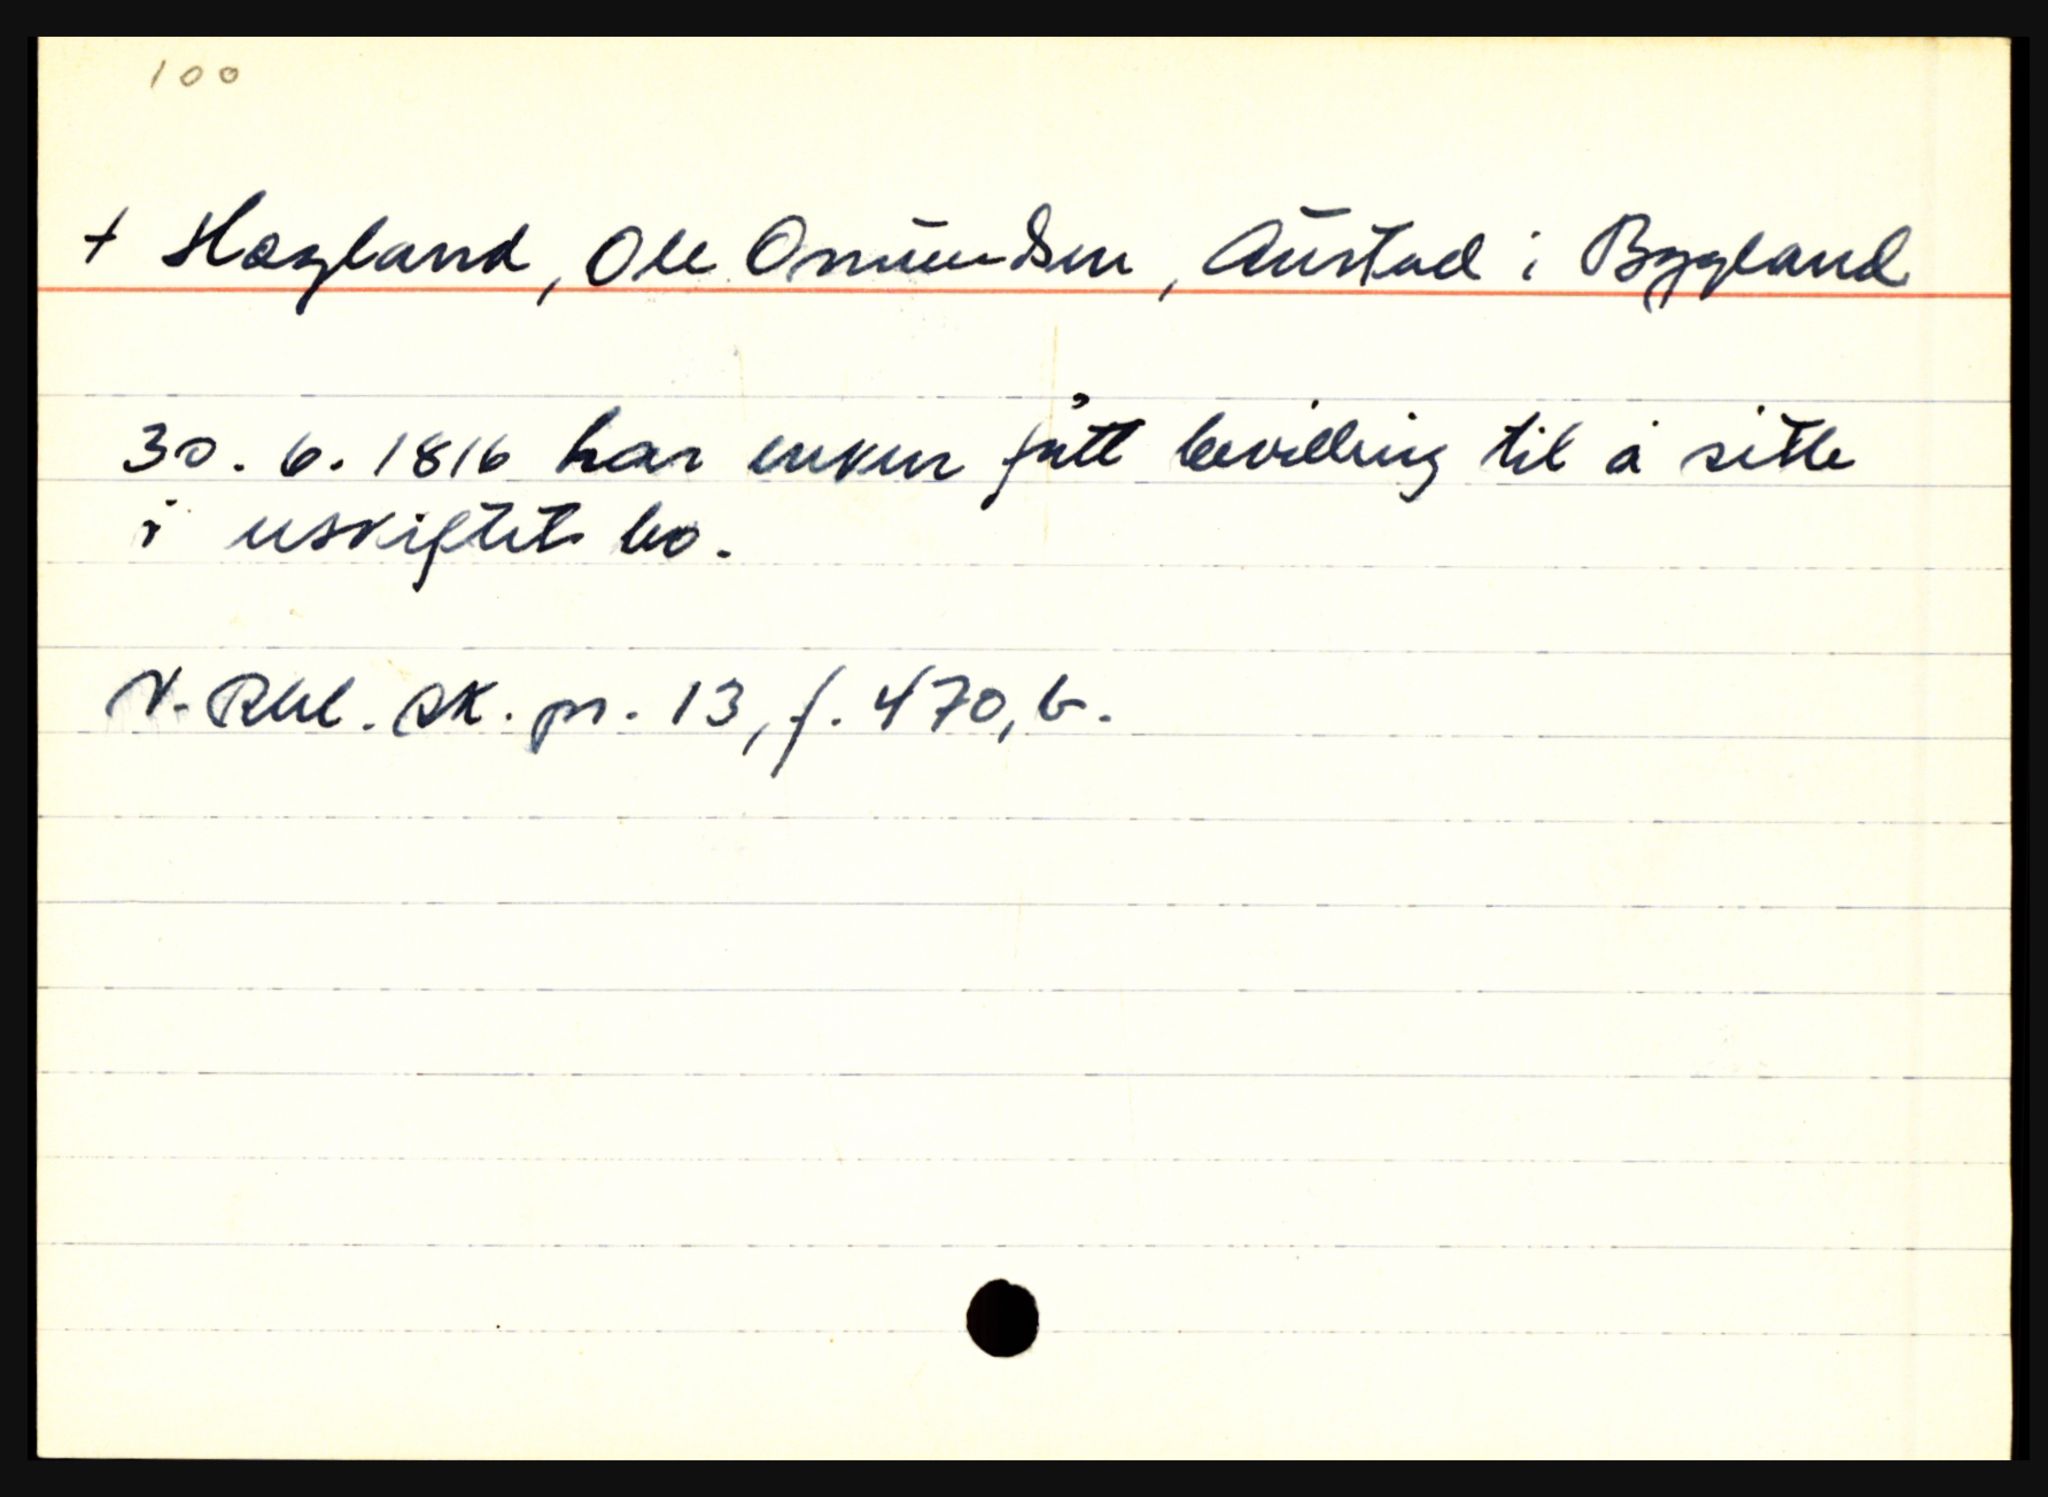 100
+ Hægland, Ole Omundsen, Austad i Bygland
30. 6. 1816 har enken fått bevilling til å sitte
i uskiftet bo.
V. Rbl. sk. pr. 13, f. 470, b.